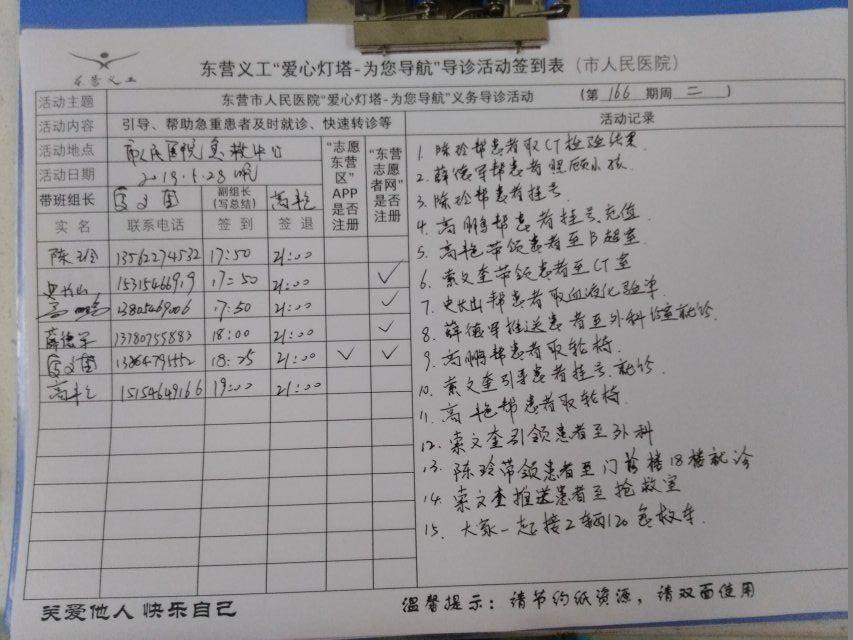 东营义工
东营义工“爱心灯塔-为您导航”导诊活动签到表（市人民医院）
活动主题 东营市人民医院“爱心灯塔-为您导航”义务导诊活动 （第 166 期周 二 ）
活动内容 引导、帮助急重患者及时就诊、快速转诊等
活动地点 市人民医院急救中心
活动日期 2019.5.28晚
带班组长 副组长（写总结） 高艳
“志愿东营区”APP是否注册
“东营志愿者网”是否注册
实名 联系电话 签到 签退
陈玲 13562274532 17:50 21:00
史长山 15315466919 17:50 21:00 ✓
高鹏 13805469006 17:50 21:00 ✓
薛德军 13780755883 18:00 21:00 ✓
18:25 21:00 ✓ ✓
高艳 15154649166 19:00 21:00
活动记录
1. 陈玲帮患者取CT检验结果
2. 薛德军帮患者照顾小孩
3. 陈玲帮患者挂号
4. 高鹏帮患者挂号、充值
5. 高艳带领患者至B超室
6. 索文奎带领患者至CT室
7. 史长山帮患者取血液化验单
8. 薛德军推送患者至外科诊室就诊
9. 高鹏帮患者取轮椅
10. 索文奎引导患者挂号、就诊
11. 高艳帮患者取轮椅
12. 索文奎引领患者至外科
13. 陈玲带领患者至门诊楼18楼就诊
14. 索文奎推送患者至抢救室
15. 大家一起接2辆120急救车
关爱他人 快乐自己
温馨提示：请节约纸资源，请双面使用